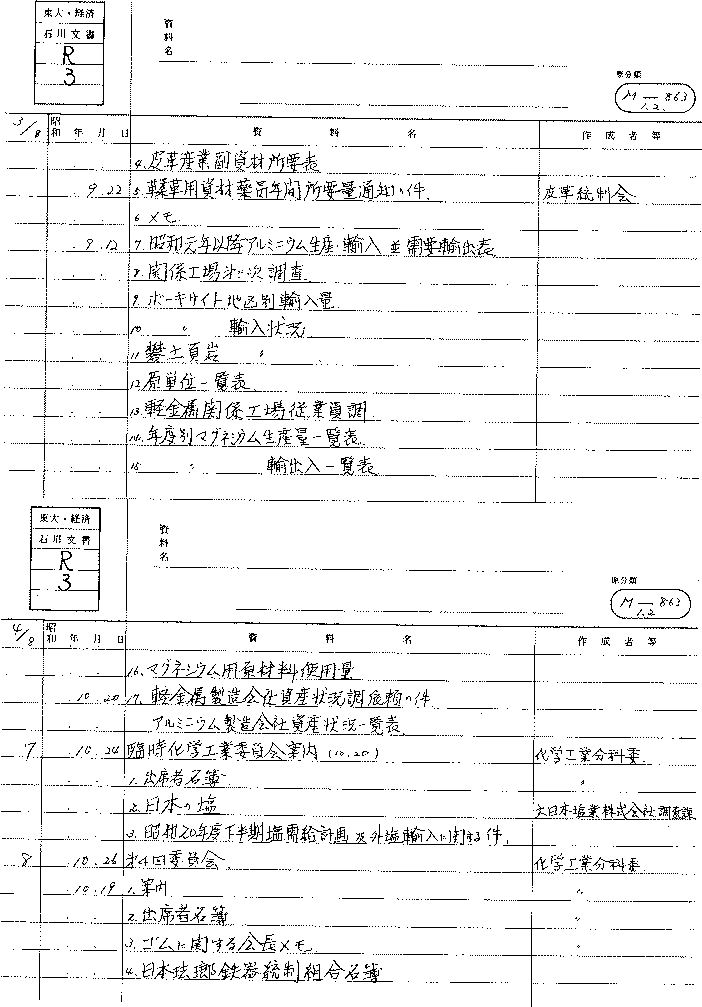 東大・経済
石川文書
R
3
資料名
原分類
M 1.2. 863
3/8
昭和 年 月 日 資 料 名 作 成 者 等
4. 皮革産業副資材所要表
9. 22 5. 鞣革用資材薬品年間所要量通知ノ件 皮革統制会
6 メモ
9. 12 7. 昭和元年以降アルミニウム生産・輸入並需要輸出表
8. 関係工場第一次調査
9. ボーキサイト地区別輸入量
10 〃 輸入状況
11 礬土頁岩 〃
12. 原単位一覧表
13. 軽金属関係工場従業員調
14. 年度別マグネシウム生産量一覧表
15 〃 輸出入一覧表
東大・経済
石川文書
R
3
資料名
原分類
M 1.2 863
4/8
昭和 年 月 日 資 料 名 作 成 者 等
16. マグネシウム用原材料使用量
10. 20 17. 軽金属製造会社資産状況調依頼ノ件
アルミニウム製造会社資産状況一覧表
7 10. 24 臨時化学工業委員会案内 (10.20) 化学工業分科委
1. 出席者名簿 〃
2. 日本の塩 大日本塩業株式会社調査課
3. 昭和20年度下半期塩需給計画及外塩輸入ニ関する件.
8 10. 26 第4回委員会. 化学工業分科委
10. 19 1. 案内 〃
2. 出席者名簿 〃
3. ゴムに関する会長メモ. 〃
4. 日本琺瑯鉄器統制組合名簿